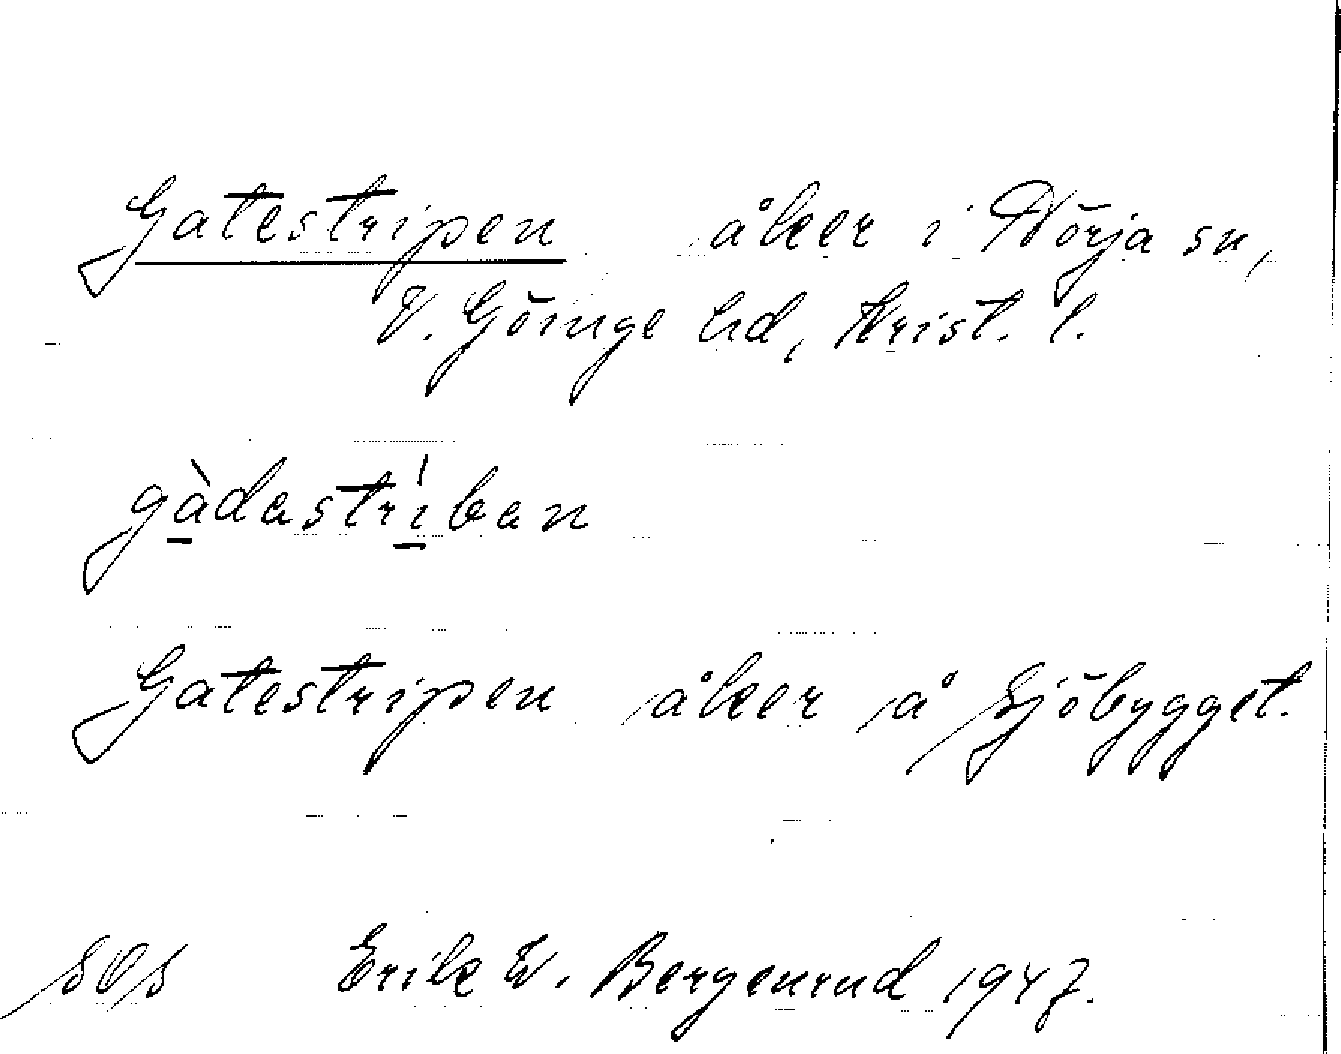 Gatestripen åker i Nörja sn,
V. Göinge hd, Krist. l.
gàdastríban
Gatestripen åker å Sjöbygget.
SOS Erik W. Bergenrud 1947.